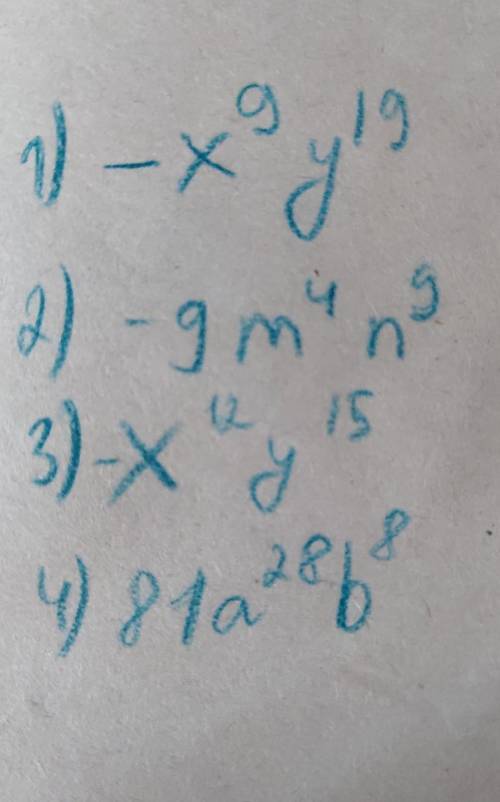 1) -x⁹ y¹⁹
2) -9 m⁴ n⁹
3) -x¹² y¹⁵
4) 81a²⁸b⁸